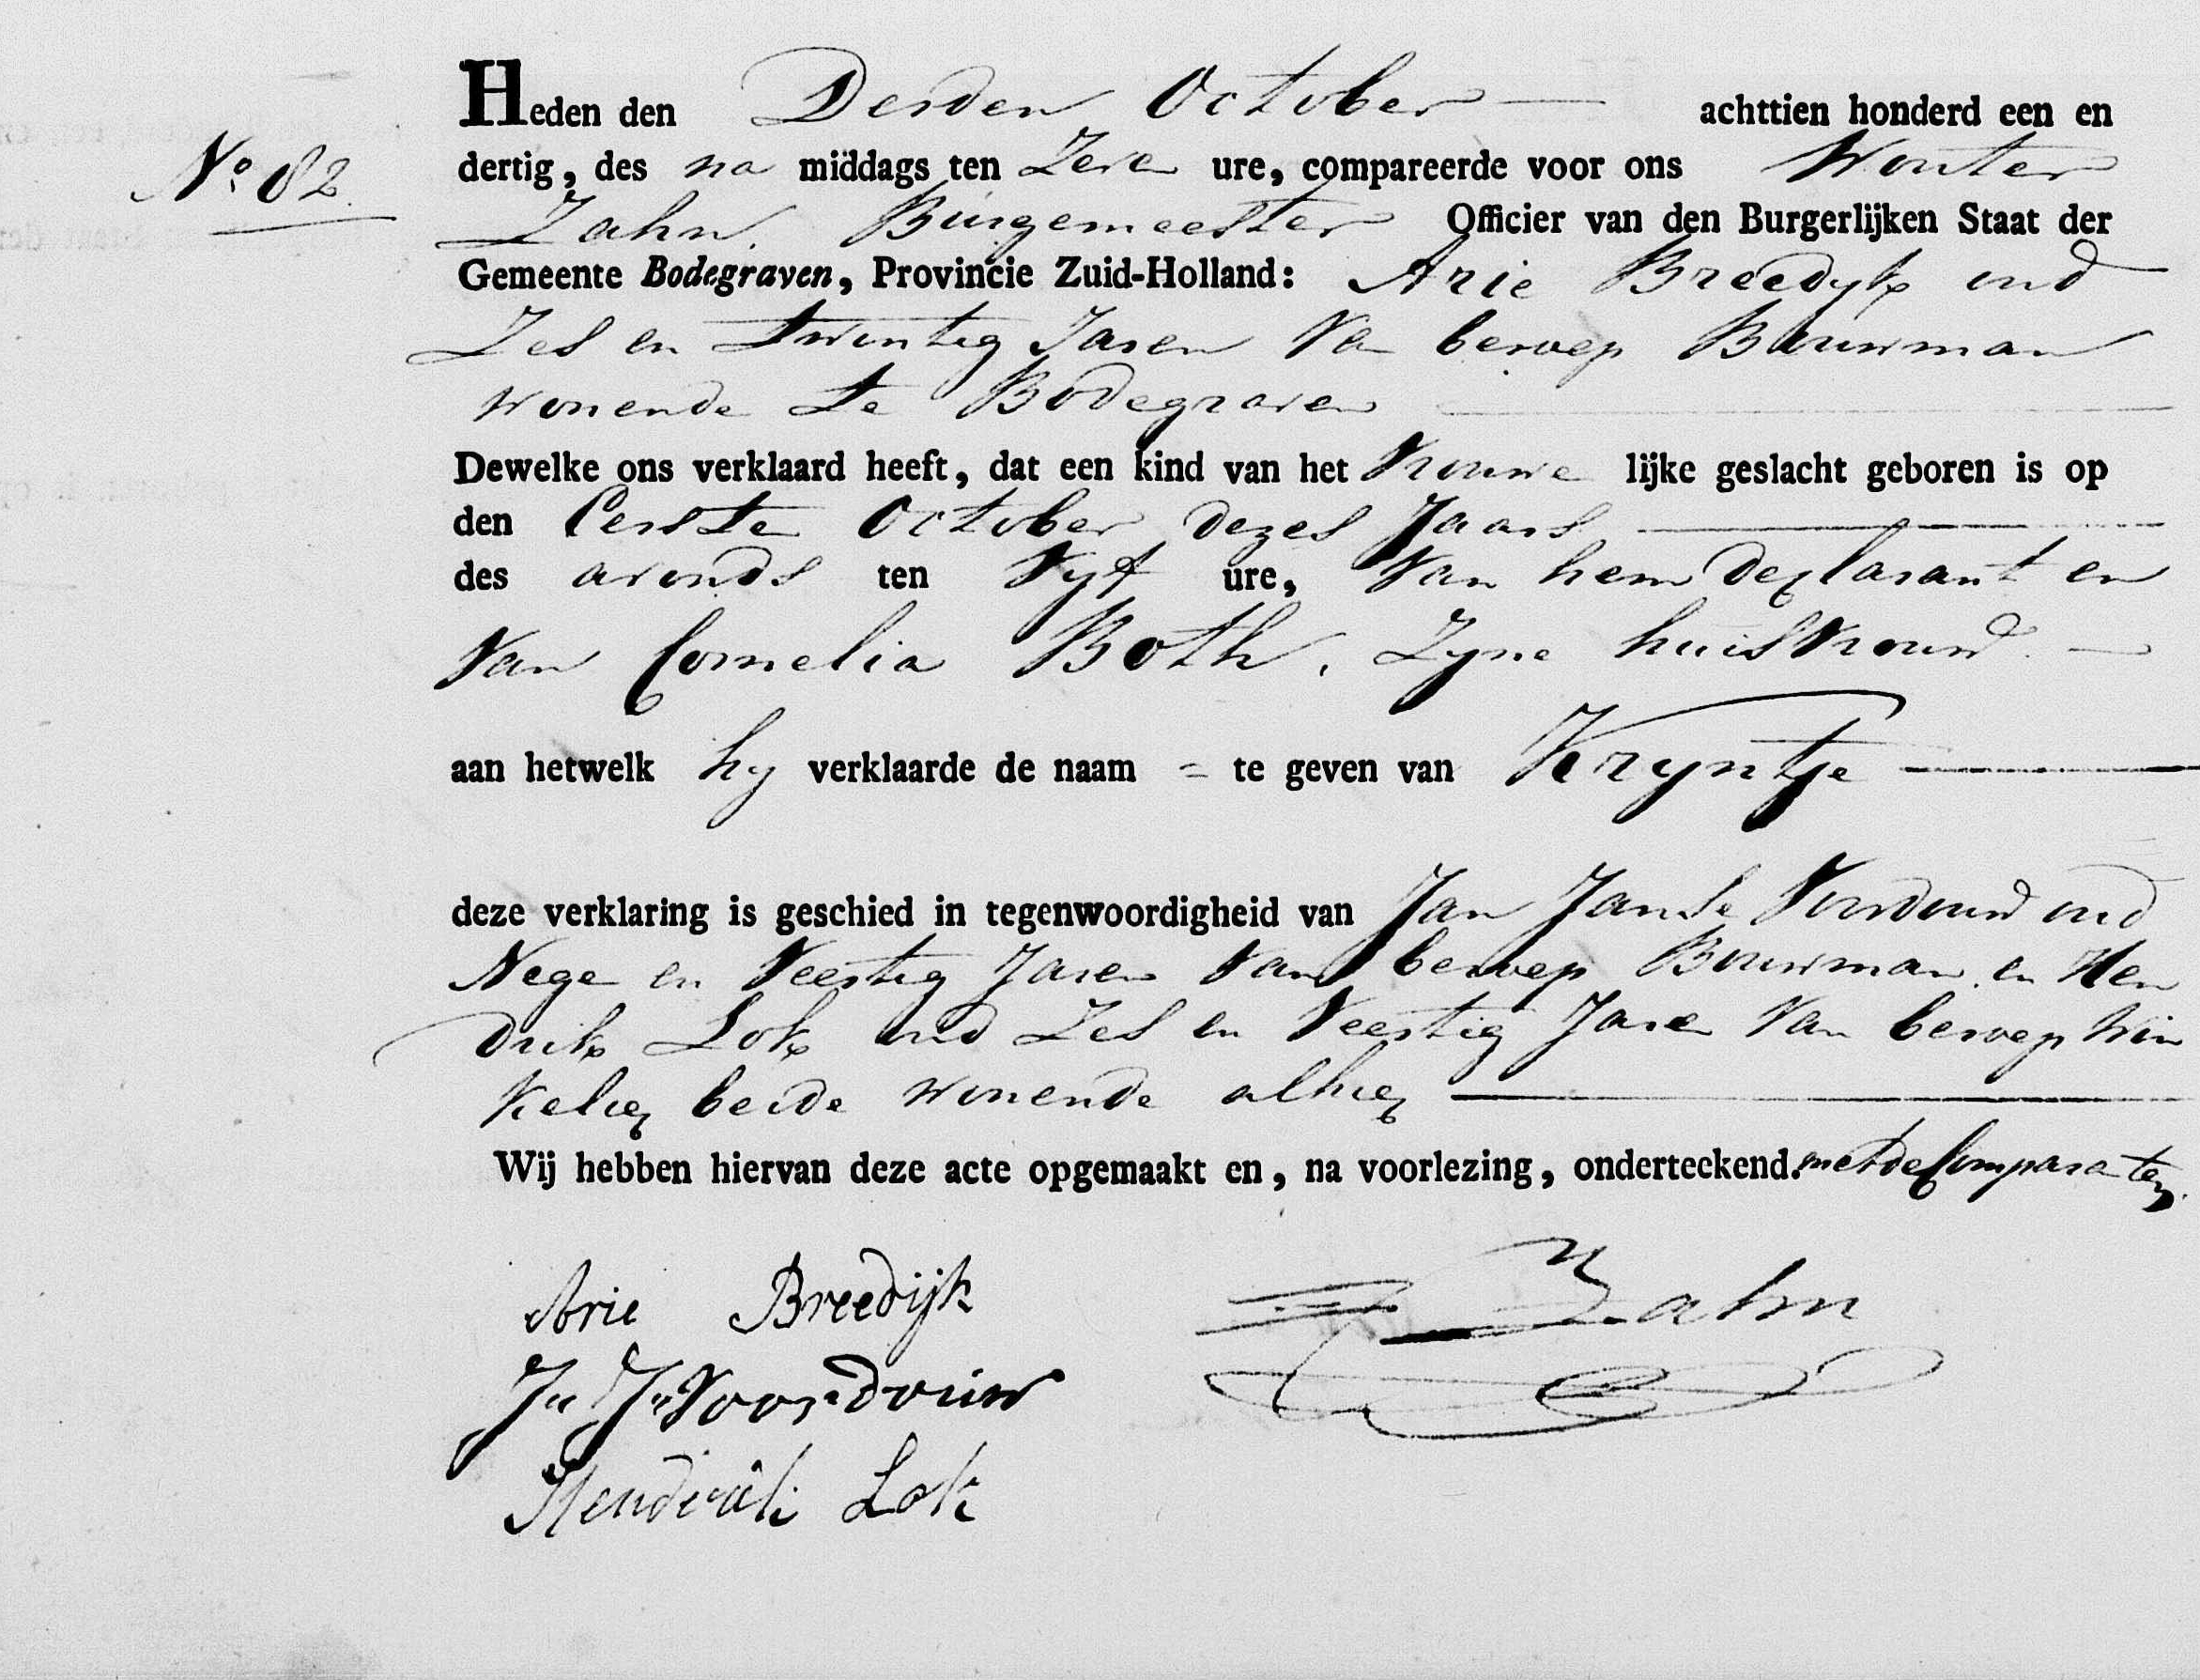 Heden den Derden October achttien honderd een en
No 82 dertig, des na middags ten Zeve ure, compareerde voor ons Wouter
Zahn. Burgemeester Officier van den Burgerlijken Staat der
Gemeente Bodegraven, Provincie Zuid-Holland: Arie Breedyk oud
Zes en Twintig Jaren Va beroep Bouwman
wonende te Bodegraven
Dewelke ons verklaard heeft, dat een kind van het Vrouwe lijke geslacht geboren is op
den Eerste October dezes Jaars
des avonds ten Vyf ure, Van hem Declarant en
Van Cornelia Both, Zyne huisvrouw.
aan hetwelk hy verklaarde de naam = te geven van Kryntje
deze verklaring is geschied in tegenwoordigheid van Jan Janse Voordouw oud
Nege en Veertig Jaren Van beroep Bouwman en Hen
drik Lok oud Zes en Veertig Jare Van beroep Win
kelier beide wonende alhier
Wij hebben hiervan deze acte opgemaakt en, na voorlezing, onderteekend. met de Comparaten.
Arie Breedijk
W Zahn
Jn Jn Voordouw
Hendrik Lok